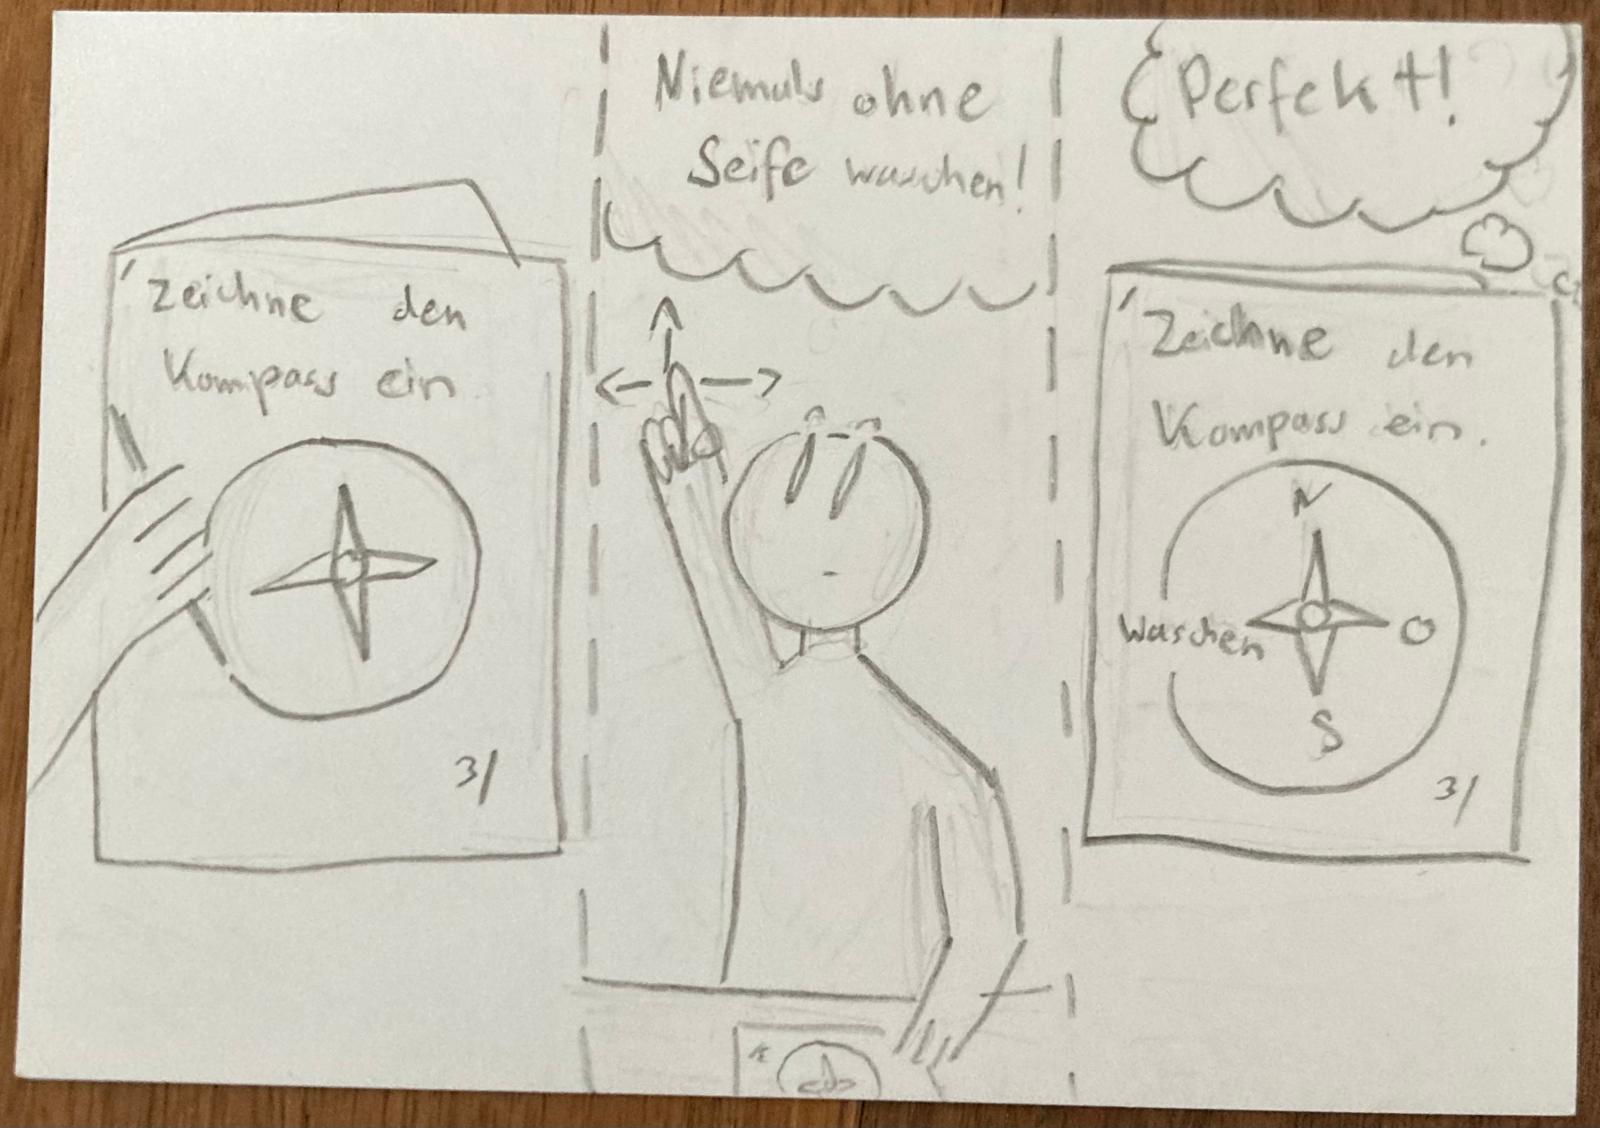 Zeichne den
Kompass ein
3/
Niemals ohne
Seife waschen!
Perfekt!
Zeichne den
Kompass ein.
N
Waschen
O
S
3/